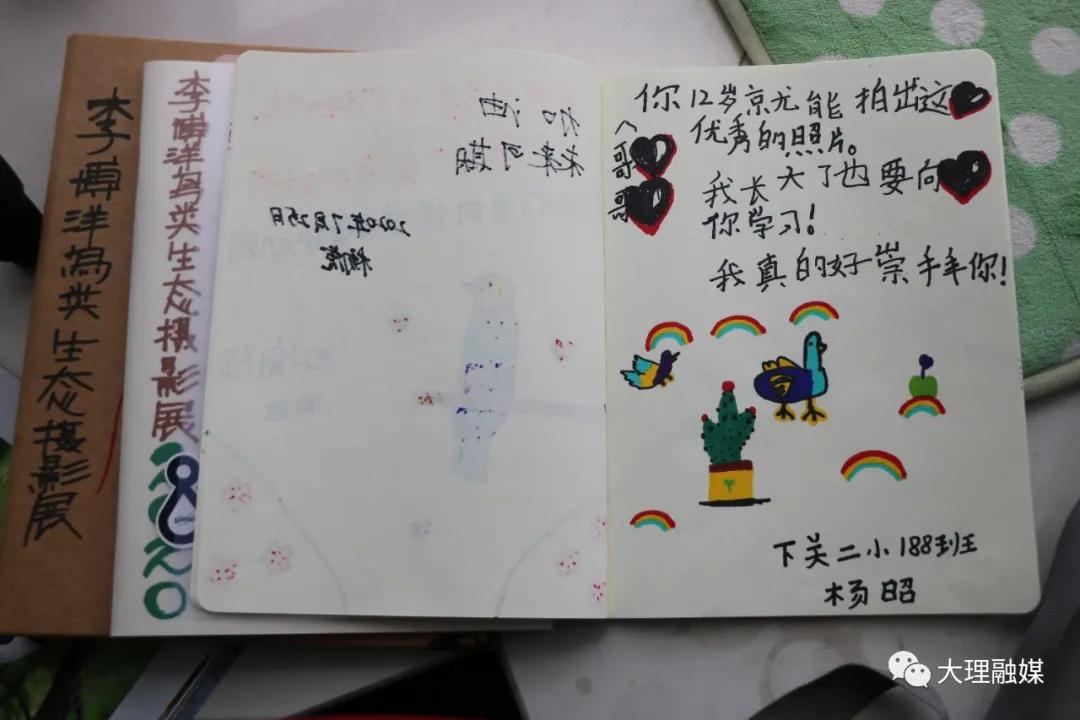 李博洋鸟类生态摄影展
李博洋鸟类生态摄影展
2020
加油
未来可期
2020年7月25日
你12岁就能拍出这
哥哥
优秀的照片。
我长大了也要向
你学习!
我真的好崇拜你!
下关二小188班
杨昭
大理融媒